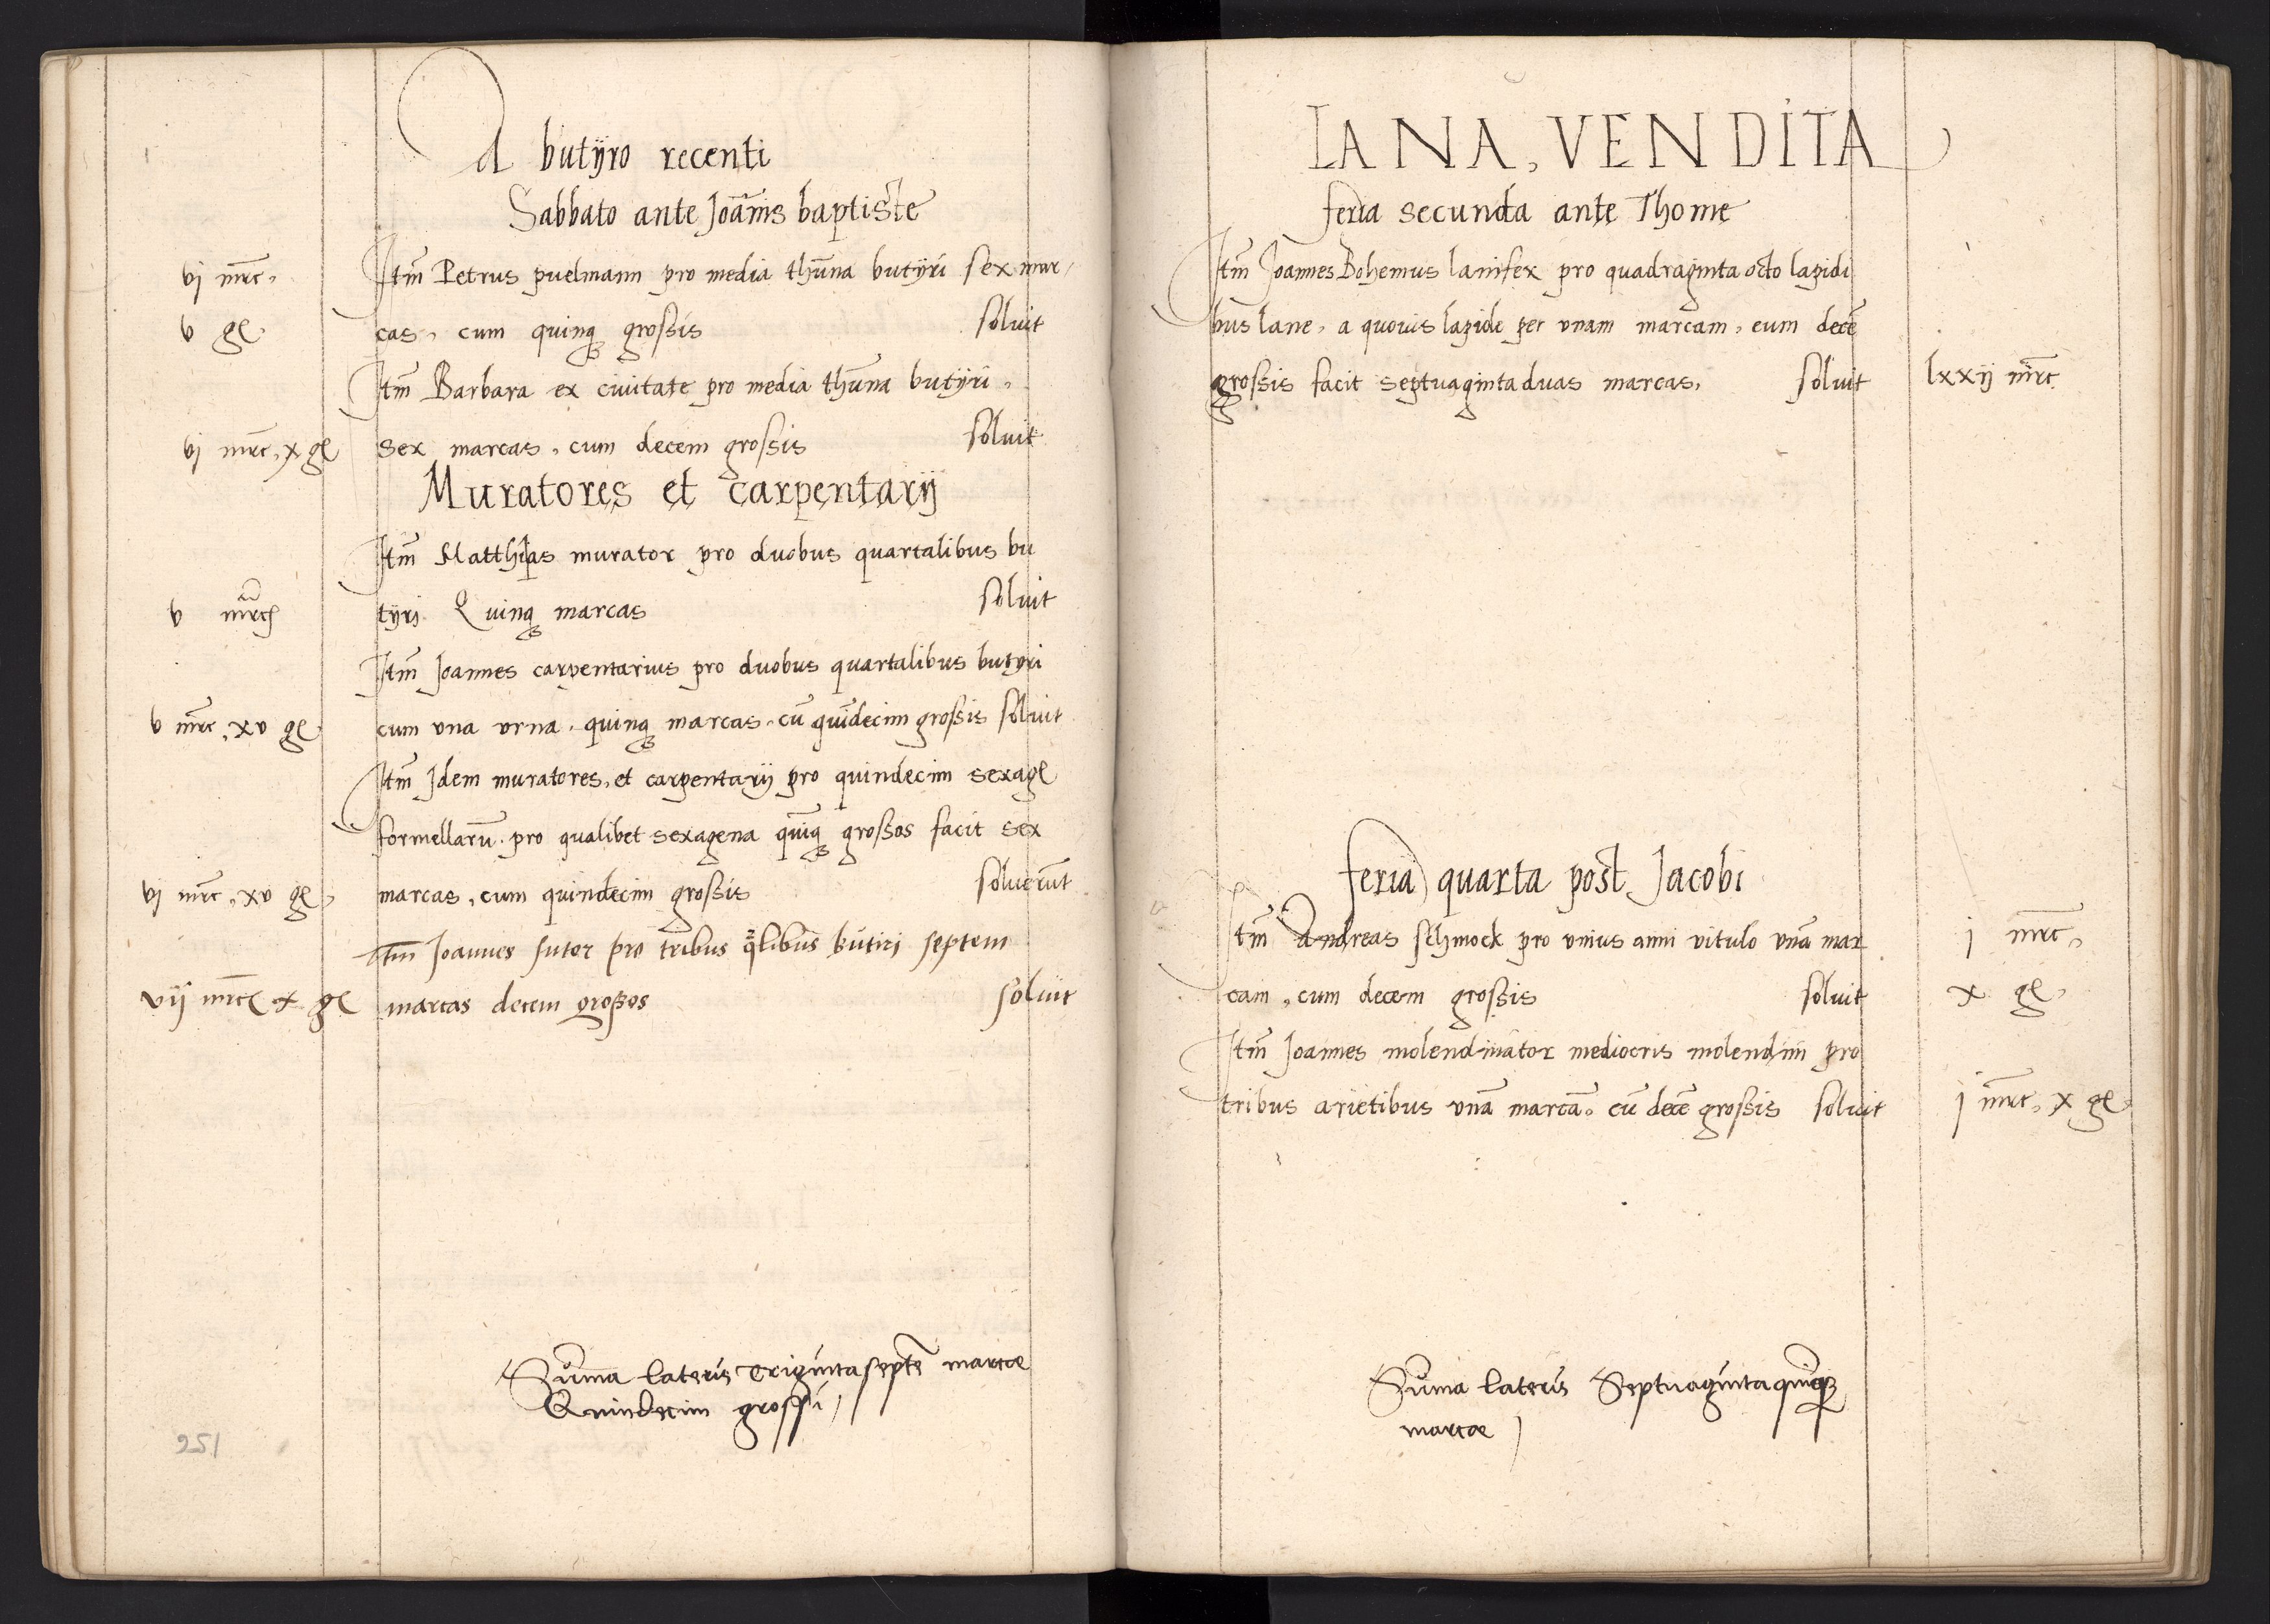 A butÿro recenti
Sabbato ante Joānis baptiste
vj mrc.
Itm̄ Petrus puelmann pro media thūna butÿri sex mar,
v gl.
cas, cum quinqꝫ grossis soluit
Itm̄ Barbara ex ciuitate pro media thūna butÿri.
vj mrc, x gl
sex marcas, cum decem grossis soluit
Muratores et carpentarij
Itm̄ Matthias murator pro duobus quartalibus bu
v mrc
tÿri Quinqꝫ marcas soluit
Itm̄ Joannes carpentarius pro duobus quartalibus butyri
v mrc, xv gl.
cum vna vrna. quinqꝫ marcas. cū quīdecim grossis soluit
Itm̄ Jdem muratores, et carpentarij pro quindecim sexagl
formellarū. pro qualibet sexagena quīqꝫ grossos facit sex
vj mrc, xv gl,
marcas, cum quindecim grossis soluerūt
Itm̄ Joannes sutor pro tribus qr̄libus butiri septem
vij mrc x gl
marcas decem grossos soluit
Sum̄a lateris Trigintaseptē marce
Quindecim grossi
251
LANA, VENDITA
feria secunda ante Thome
Itm̄ Joannes Bohemus lanifex pro quadraginta octo lapidi
bus lane, a quouis lapide per vnam marcam, cum decē
grossis facit septuaginta duas marcas, soluit lxxij mrc
feria quarta post Jacobi
Itm̄ Andreas schmock pro vnius anni vitulo vnā mar j mrc,
cam, cum decem grossis soluit x gl,
Itm̄ Joannes molendinator mediocris molendini pro
tribus arietibus vnā marcā. cū decē grossis soluit j mrc, x gl.
Sum̄a lateris Septuagintaquīqꝫ
marce